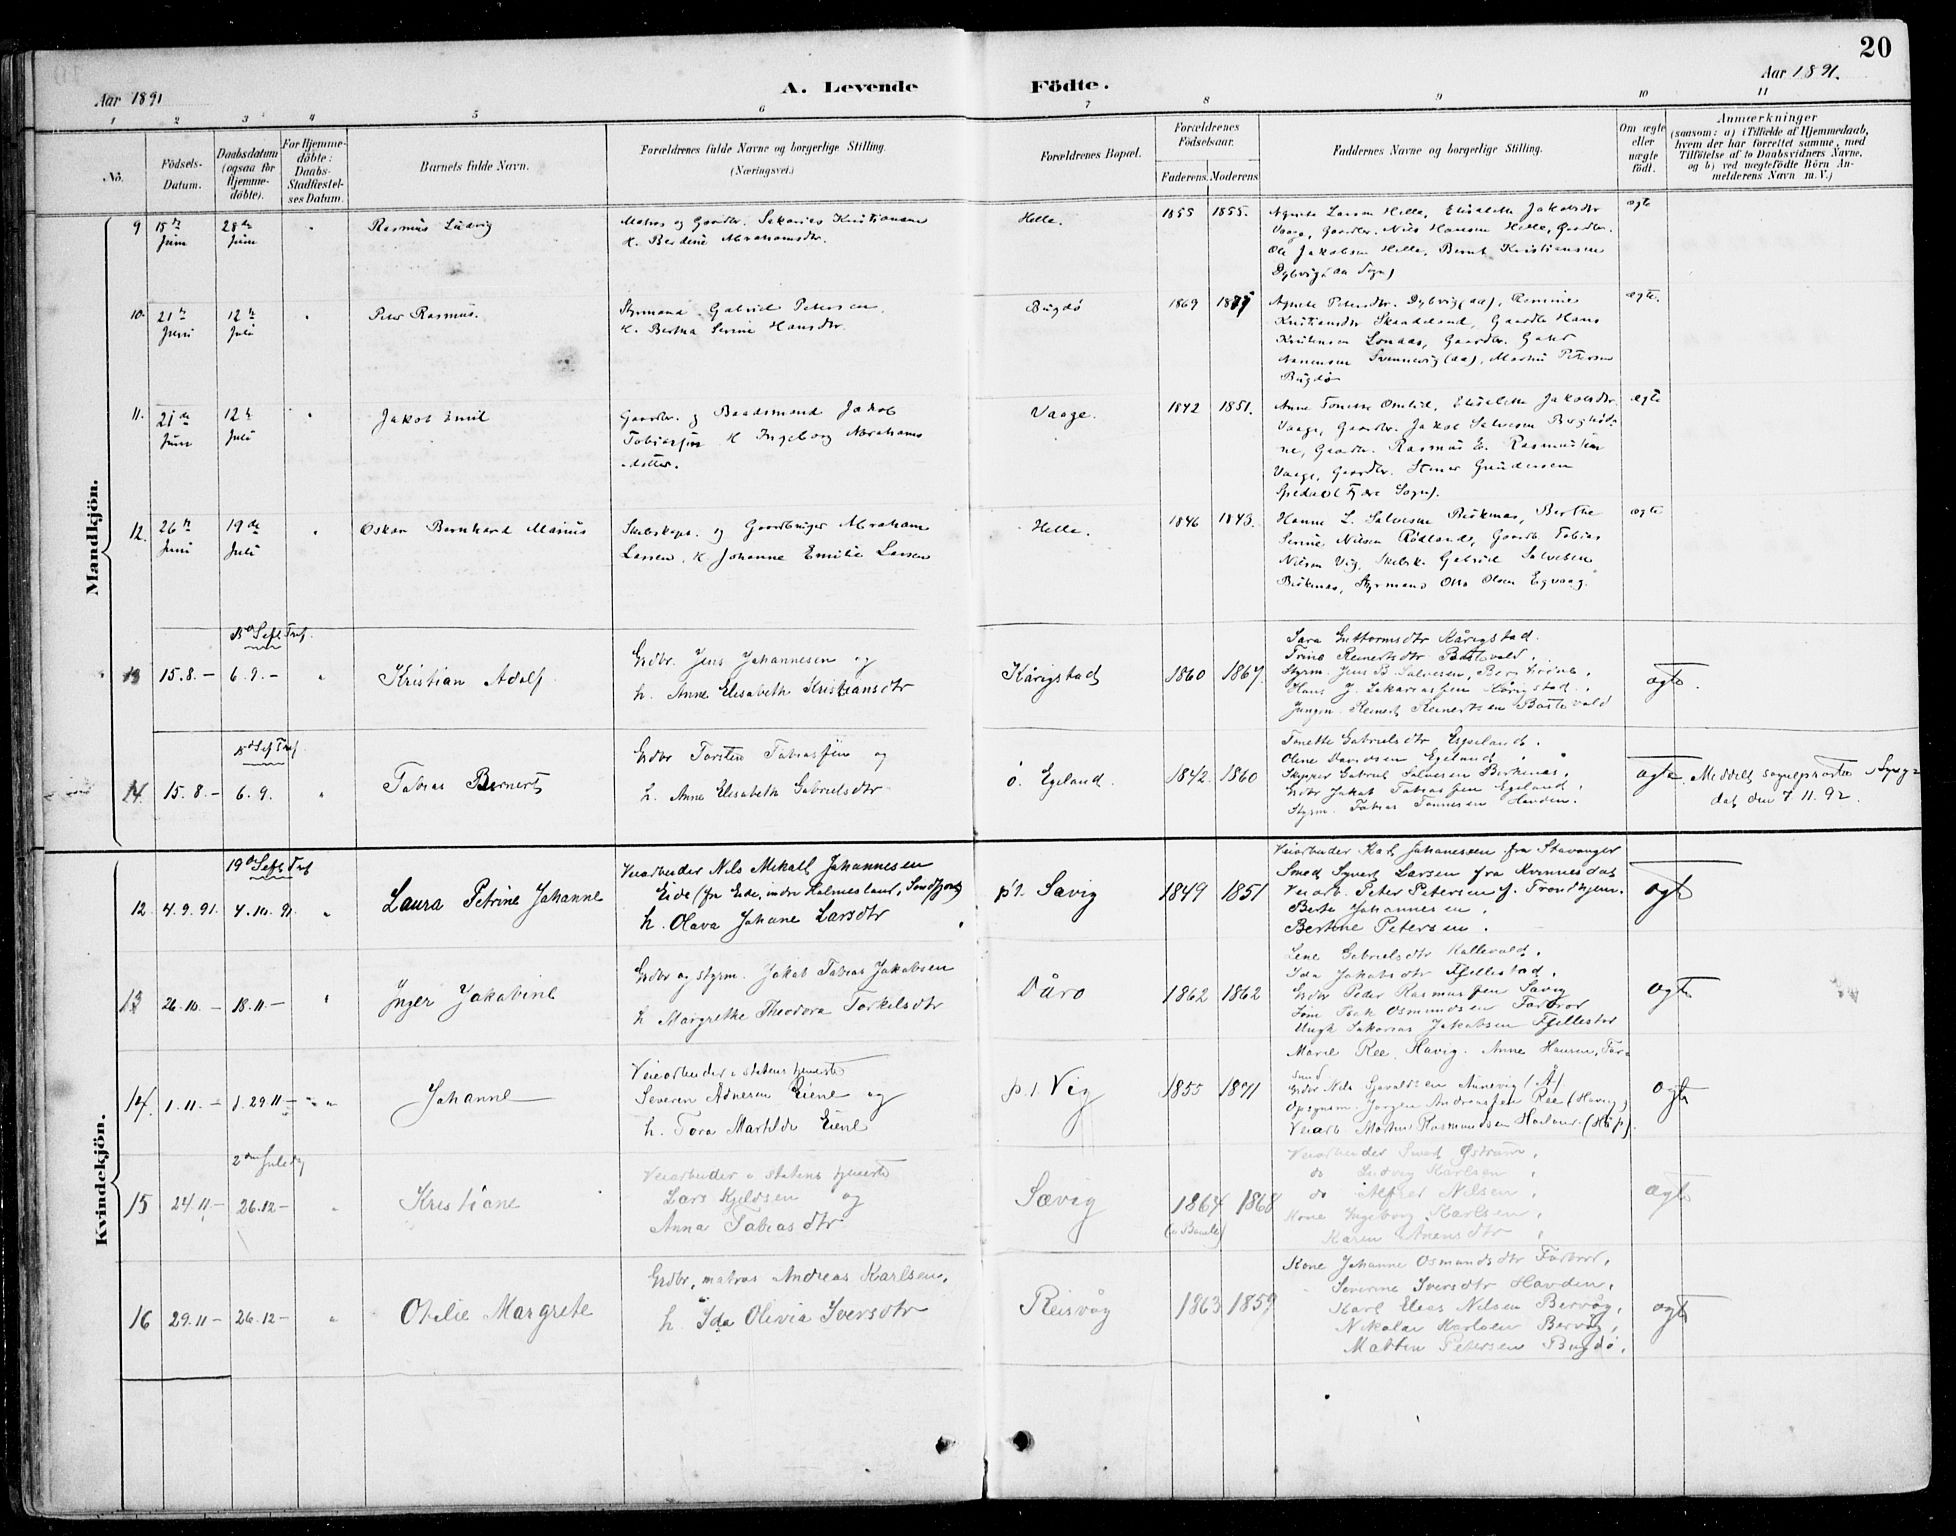 20
Aar 1891
A. Levende
Födte.
Aar 1891.
1 2 3 4 5 6 7 8 9 10 11
No.
Födsels-Datum.
Daabsdatum (ogsaa för Hjemme-döbte).
For Hjemme-döbte: Daabs-Stadfæstel-ses Datum.
Barnets fulde Navn.
Forældrenes fulde Navne og borgerlige Stilling.
(Næringsvei.)
Forældrenes Bopæl.
Forældrenes Födselsaar.
Faderens. Moderens.
Faddernes Navne og borgerlige Stilling.
Om ægte eller uægte födt.
Anmærkninger
(saasom: a) i Tilfælde af Hjemmedaab,
hvem der har forrettet samme, med
Tilföielse af to Daabsvidners Navne,
og b) ved uægtefödte Börn An-
melderens Navn m. V.)
Mandkjön.
9 15de Juni 28de Juni " Rasmus Ludvig
Matros og Gaardbr. Sakarias Kristiansen
H. Berdine Abrahamsdtr.
Helle. 1855 1855.
Agnete Larsen Helle, Elisabeth Jakobsdtr
Vaage, Gaardbr. Nils Hansen Helle, Gaardbr.
Ole Jakobsen Helle, Bernt Kristiansen
Dybvig (Aa Sogn)
ægte
10. 21de Juni 12te Juli " Peter Rasmus.
Styrmand Gabriel Petersen
H. Bertha Serine Hansdtr.
Bugdö 1869
Agnete Petersdtr. Dybvig (Aa),
Kristiansdtr Skaadeland, Gaardbr Hans
Kristensen Londaas, Gaardbr.
Svennevig (aa), Martin Petersen
Bugdö
ægte.
11. 21de Juni 12te Juli " Jakob Emil
Gaardbr. og Baadsmand Jakob
Tobiassen H Ingeborg Abrahams
datter.
Vaage. 1842 1851.
Anne Tonette Omlid, Elisabeth Jakobsdtr
Vaage, Gaardbr. Jakob Salvesen
Gaardbr. Rasmus E. Rasmussen
Vaage, Gaardbr. Stener Gundersen
Fjære Sogn).
ægte
12. 26te Juni 19de Juli " Oskar Bernhard Marius
Skibskapt. og Gaardbruger Abraham
Larsen, H Johanne Emilie Larsen
Helle. 1846 1843.
Hanne L. Salvesen Birkenas, Berthe
Serine Nilsen Rödland, Gaardb Tobias
Nilsen Vig, Skibsk. Gabriel Salvesen
Birkenas, Styrmand Otto Olsen Egvaag.
ægte
13 15.8.— 6.9.— " Kristian Adolf
Grdbr. Jens Johannesen og
h. Anne Elisabeth Kristiansdtr
Kårigstad 1860 1867.
Sara Guttormsdtr Kårigstad.
Trine Reinertsdtr Båstevold.
Styrm. Jens B. Salvesen,
Hans J. Sakariassen Kårigstad.
Jungm. Reinert Reinertsen Båstevold
ægte.
14. 15.8.— 6.9. " Tobias Bernert
Grdbr Torsten Tobiassen og
h. Anne Elisabeth Gabrielsdtr
ö. Egeland. 1842. 1860
Tonette Gabrielsdtr Egeland.
Oline Davidsen Egeland.
Skipper Gabriel Salvesen Birkenas,
Grdbr Jakob Tobiassen Egeland,
Styrm. Tobias Tönnesen Havden.
ægte. Meddelt sogneprästen i
den 7.11.92.
Kvindekjön.
12 4.9.91. 4.10.91 " Laura Petrine Johanne
Veiarbeider Nils Mikael Johannesen
Eide (fra Eide, indre Holmedal, Söndfjord)
h. Olava Johane Larsdtr
p.t. Sævig 1849 1851
Veiarbeider Karl Johanessen fra Stavanger
Smed Syvert Larsen fra Kvinnesdal
Veiarb. Peter Petersen f. Trondhjem.
Berte Johannesen,
Bertine Petersen.
ægt
13 26.10.— 18.11— " Inger Jakobine
Grdbr og styrm. Jakob Tobias Jakobsen
h Margrethe Theodora Torkelsdtr
Dåro 1862 1862
Lene Gabrielsdtr Kallevold.
Ida Jakobsdtr Fjellestad,
Grdbr Peder Rasmussen Sævig
Isak Osmundsen Farbrot
Ungk Sakarias Jakobsen Fjellestad
ægt
14 1.11.— 1.29.11— " Johanne
Veiarbeider i statens tjeneste
Severin Adnesen Eiene og
h. Tora Matilde Eiene
p.t. Vig 1855 1871
Marie Ree Håvig. Anne Hansen,
Grdbr Nils Annevig (Å)
Jörgen Andreassen Ree (Håvig)
Veiarb Martin Rasmundsen
ægte
15 24.11— 2den Juledag 26.12— " Kristiane
Veiarbeider i statens tjeneste
Lars Kjeldsen og
Anna Tobiasdtr
Sævig 1864 1868
(i Bamle)
Veiarbeider
do Ludvig Karlsen,
do Alfred Nilsen,
Kone Ingeborg Karlsen,
Karen Anensdtr,
ægte
16 29.11— 26.12— " Otelie Margrete
Grdbr. matros Andreas Karlsen,
h. Ida Olivia Iversdtr
Reisvåg 1863 1859
Kone Johanne Osmundsdtr Farbrot,
Severine Iversdtr Havden,
Karl Elias Nilsen Bervåg,
Nikolai Karlsen Bervåg,
Martin Petersen Bugdö,
ægte